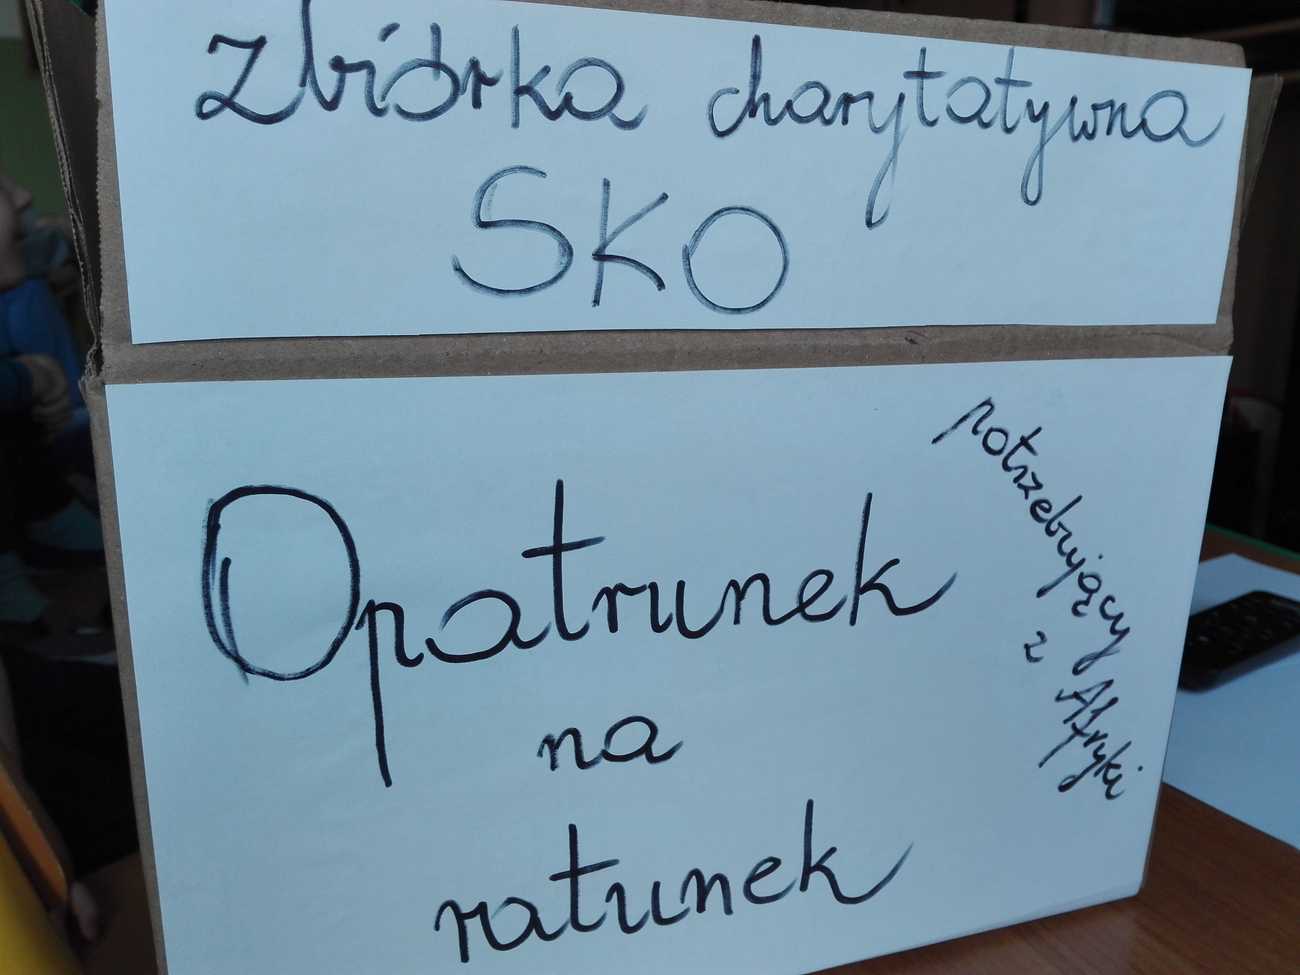 Zbiórka charytatywna
SKO
Opatrunek
na
ratunek
potrzebujący
z
Afryki